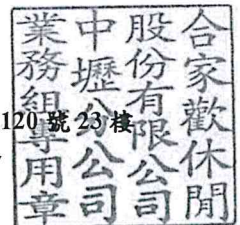 合家歡休閒
股份有限公司
中壢分公司
業務組專用章
120 號 23 樓